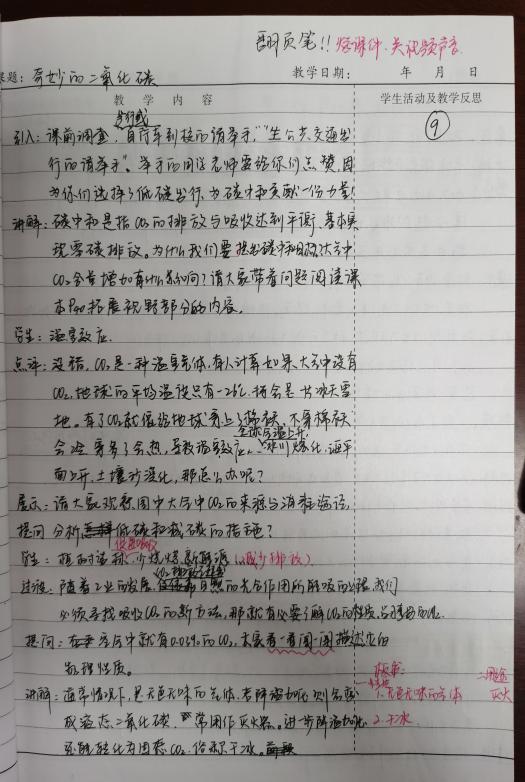 翻页笔!! 修课件、关视频声音
课题: 奇妙的二氧化碳 教学日期: 年 月 日
教 学 内 容 学生活动及教学反思
步行或 ⑨
引入: 课前调查, 自行车到校的请举手, "坐公共交通出
行的请举手"。举手的同学老师要给你们点赞, 因
为你们选择了低碳出行, 为碳中和贡献一份力量!
讲解: 碳中和是指CO₂的排放与吸收达到平衡, 基本实
现零碳排放。为什么我们要提出碳中和目标?大气中
CO₂含量增加有什么影响?请大家带着问题阅读课
本 拓展视野部分的内容。
学生: 温室效应.
点评: 没错, CO₂是一种温室气体, 有人计算如果大气中没有
CO₂, 地球的平均温度只有-26℃, 将会是一片冰天雪
地。有了CO₂就像给地球穿上了棉袄, 不穿棉袄
全球气温上升,
会冷, 穿多了会热, 导致温室效应, 冰川熔化, 海平
面上升, 土壤沙漠化, 那怎么办呢?
展示: 请大家观察图中大气中CO₂的来源与消耗途径
提问 分析 低碳和减碳的措施?
学生: 植树造林, 少烧煤, 新能源 (减少排放)
过渡: 随着工业的发展, 自然的光合作用所能吸收的 , 我们
必须寻找吸收CO₂的新方法, 那就有必要了解CO₂的性质,
提问: 空气中就有0.03%的CO₂, 大家看一看闻一闻描述它的
物理性质。
板书: 二、用途
讲解: 通常情况下, 是无色无味的气体, 若降温加压则会变 1.无色无味的气体 灭火
成液态二氧化碳, 常用作灭火器。进一步降温加压 2.干冰
还能转化为固态CO₂, 俗称干冰。